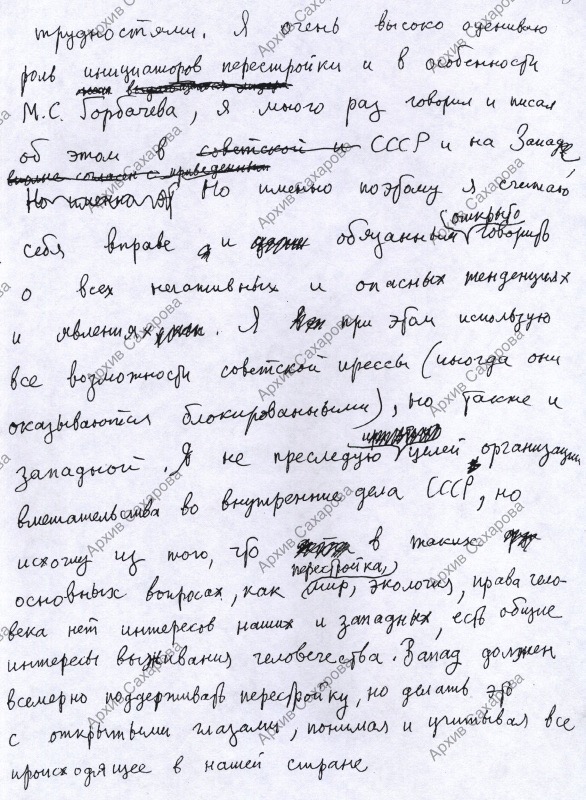 трудностями. Я очень высоко оцениваю
роль инициаторов перестройки и в особенности
М.С. Горбачева, я много раз говорил и писал
об этом в советской и СССР и на Западе,
вполне согласен с приведенными
Но именно Но именно поэтому я считаю
открыто
себя вправе и обязанным говорить
о всех негативных и опасных тенденциях
и явлениях. Я при этом использую
все возможности советской прессы (иногда они
оказываются блокированными), но также и
западной. Я не преследую целей организации
вмешательства во внутренние дела СССР, но
исхожу из того, что в таких
перестройка,
основных вопросах, как мир, экология, права чело-
века нет интересов наших и западных, есть общие
интересы выживания человечества. Запад должен
всемерно поддерживать перестройку, но делать это
с открытыми глазами, понимая и учитывая все
происходящее в нашей стране
Архив Сахарова